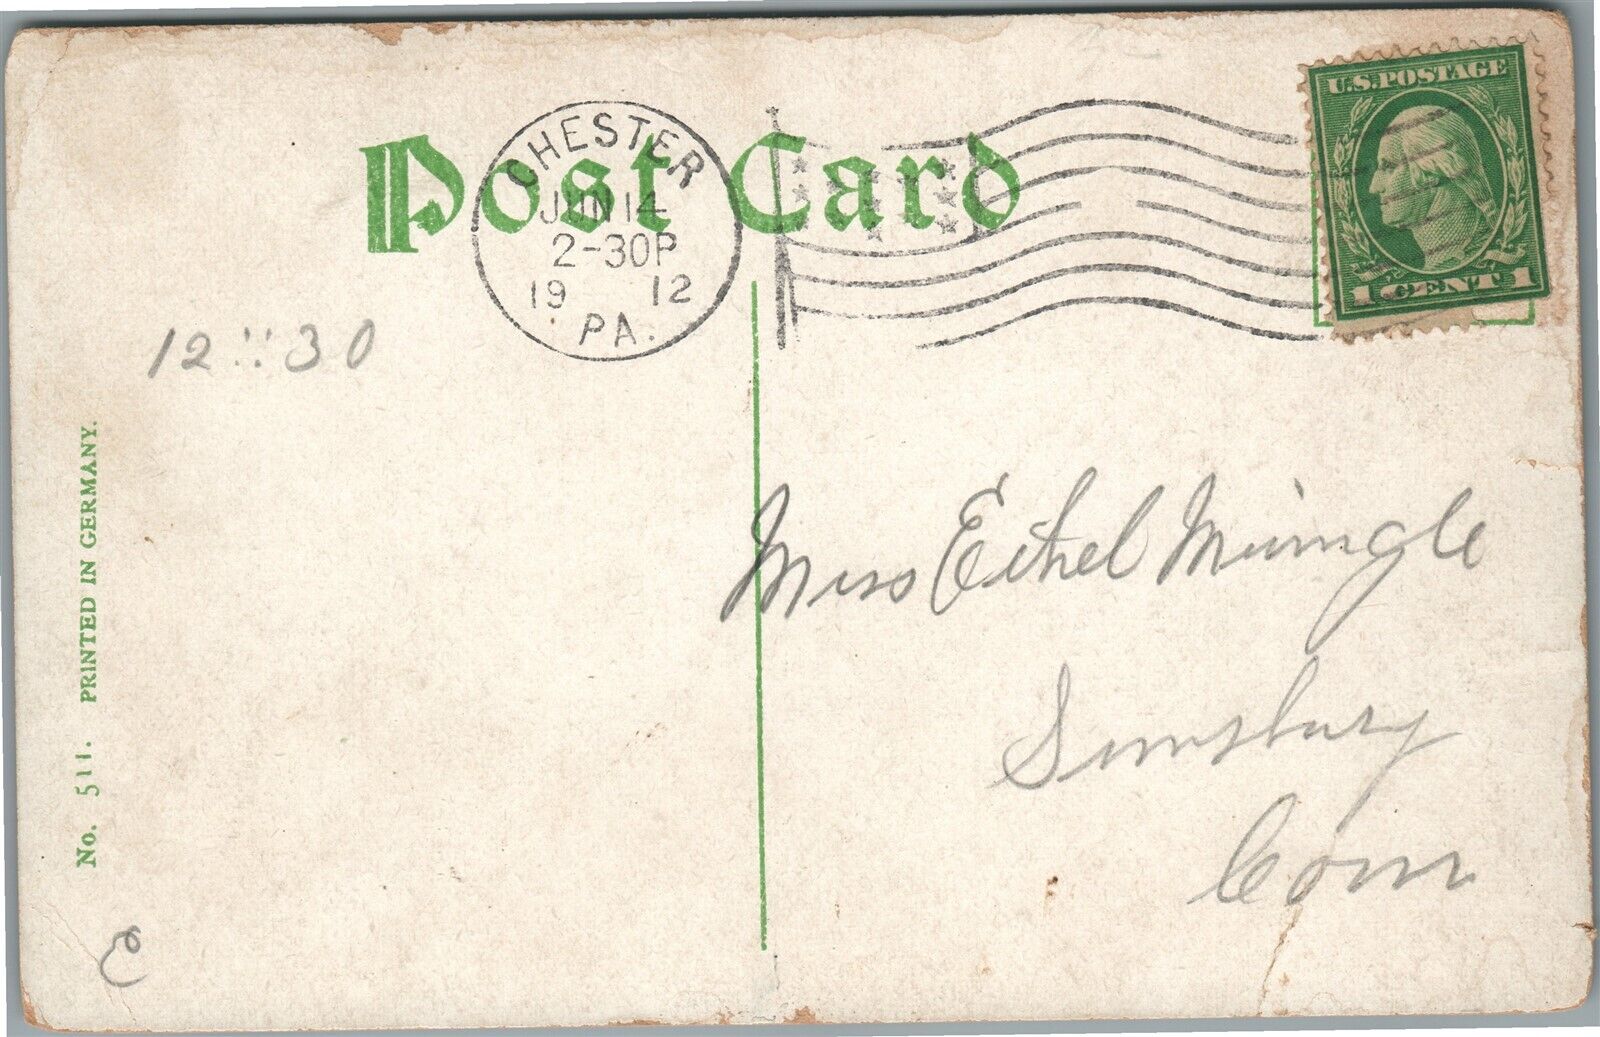 Post Card
CHESTER
JUN 14
2-30P
19 12
PA.
U.S. POSTAGE
1 CENT 1
12 :: 30
Miss Ethel
Simsbury
Conn
No. 511. PRINTED IN GERMANY.
e